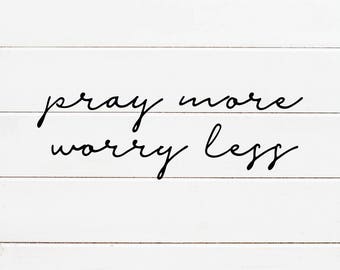 pray more
worry less